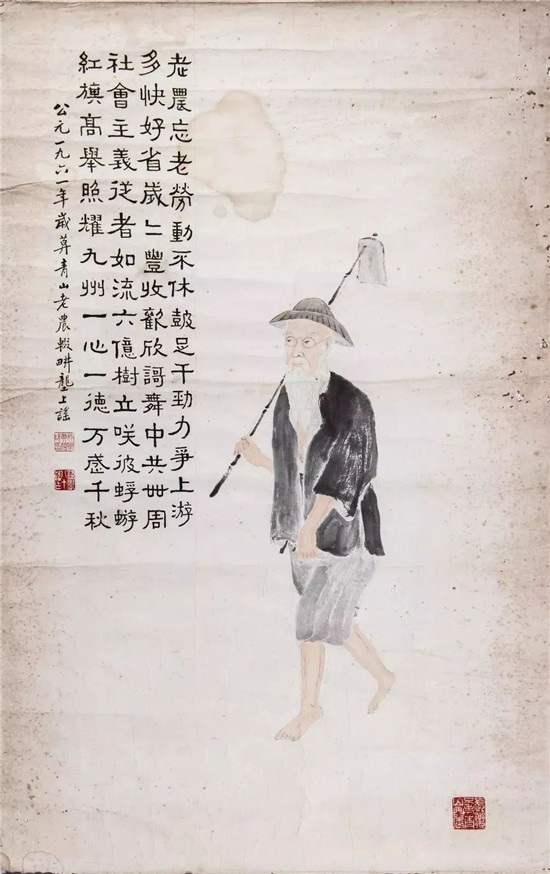 老農忘老勞動不休鼓足干勁力爭上游
多快好省歲〻豐收歡欣謌舞中共卌周
社會主義従者如流六億樹立咲彼蜉蝣
紅旗髙舉照耀九州一心一德万歲千秋
公元一九六一年歲莫青山老農輟畊壟上謠